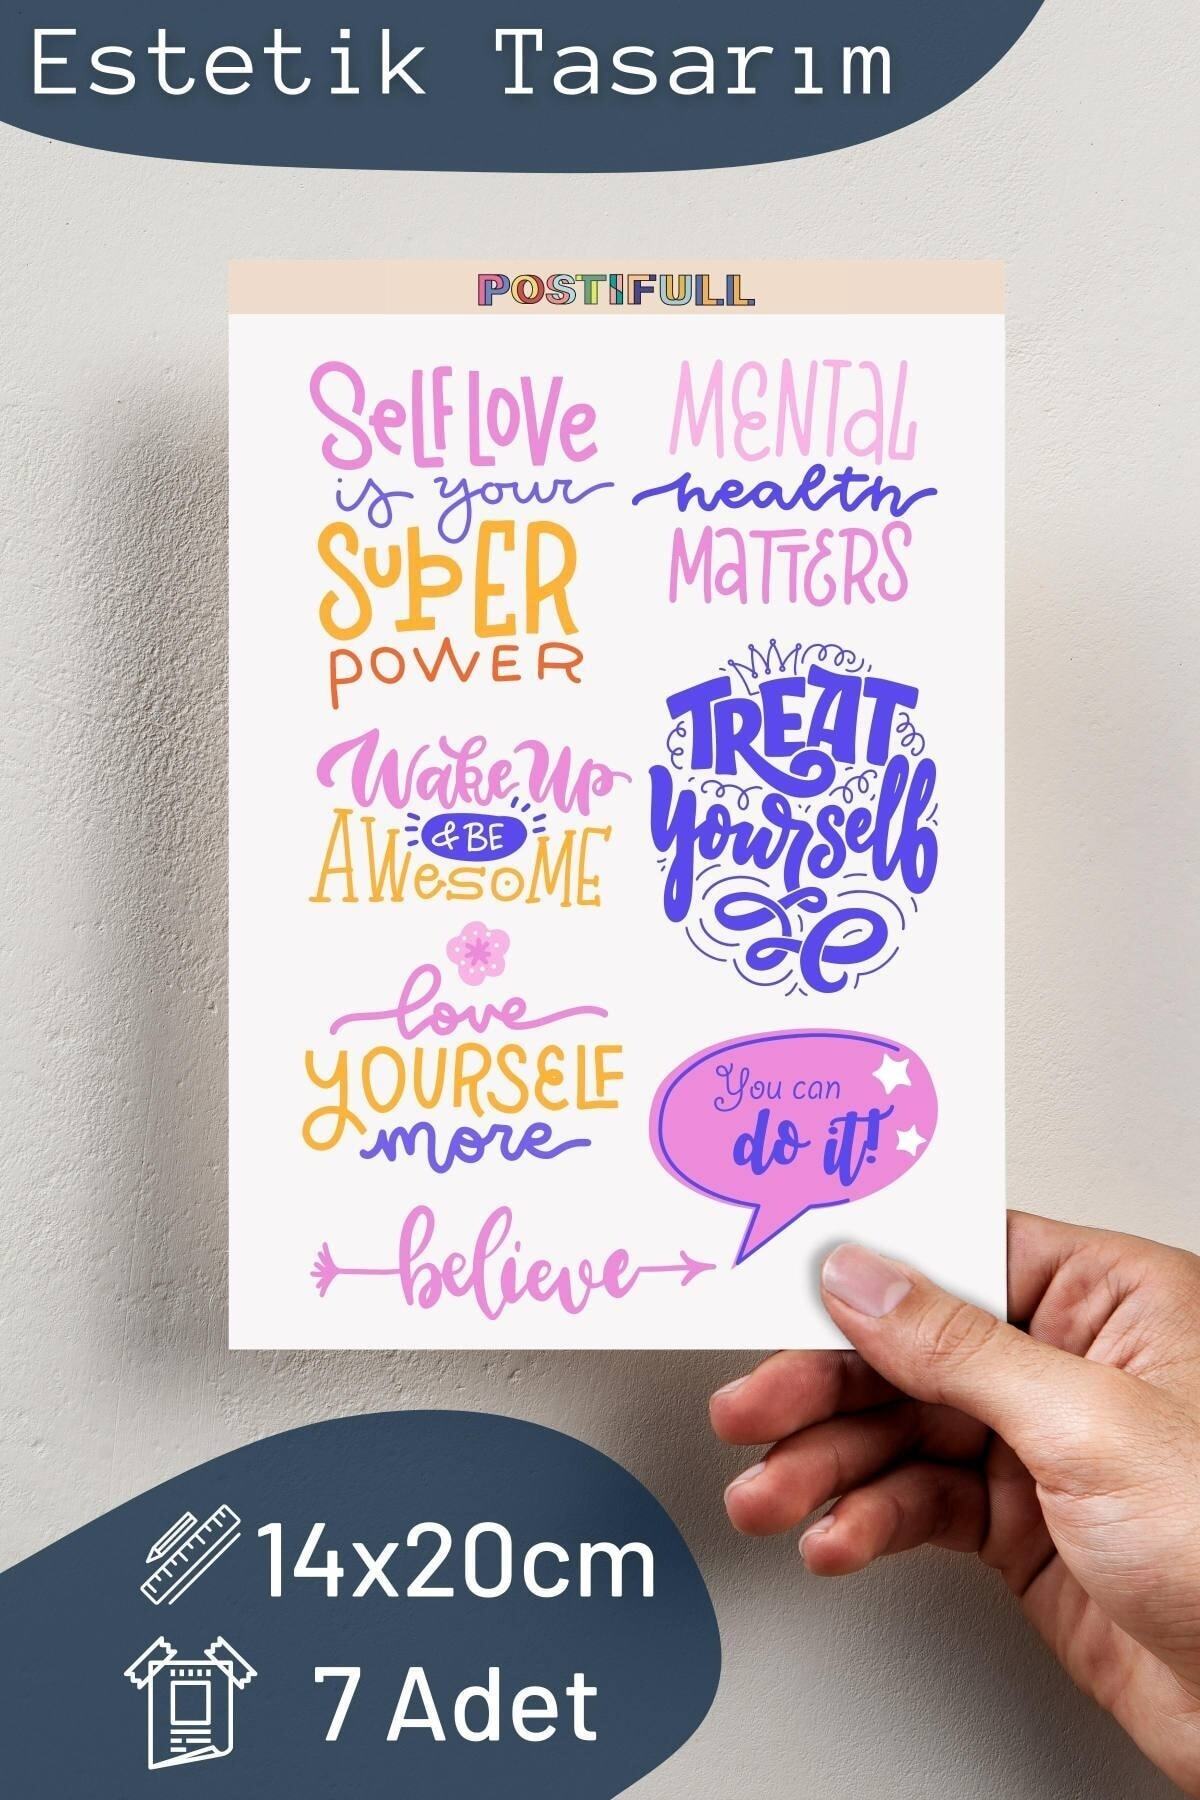 Estetik Tasarım
POSTIFULL
Self Love
is your
SupER
POWER
MENTaL
health
MaTTERS
Wake Up
& BE
AWesoME
TREAT
Yourself
love
YOURSELF
more
You can
do it!
believe
14x20cm
7 Adet